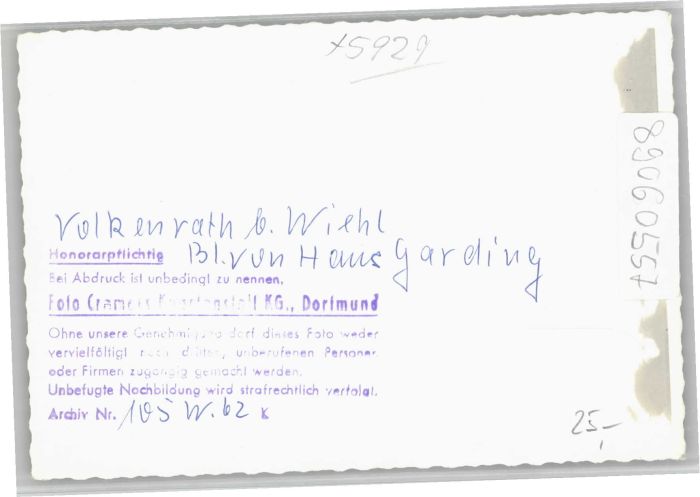 x5929
Volkenrath b. Wiehl
Bl. von Haus Garding
Honorarpflichtig
Bei Abdruck ist unbedingt zu nennen,
Foto Cramers Kunstanstalt KG., Dortmund
Ohne unsere Genehmigung darf dieses Foto weder
vervielfältigt noch dritten, unberufenen Personen
oder Firmen zugängig gemacht werden.
Unbefugte Nachbildung wird strafrechtlich verfolgt.
Archiv Nr. 105 W. 62 K
25,-